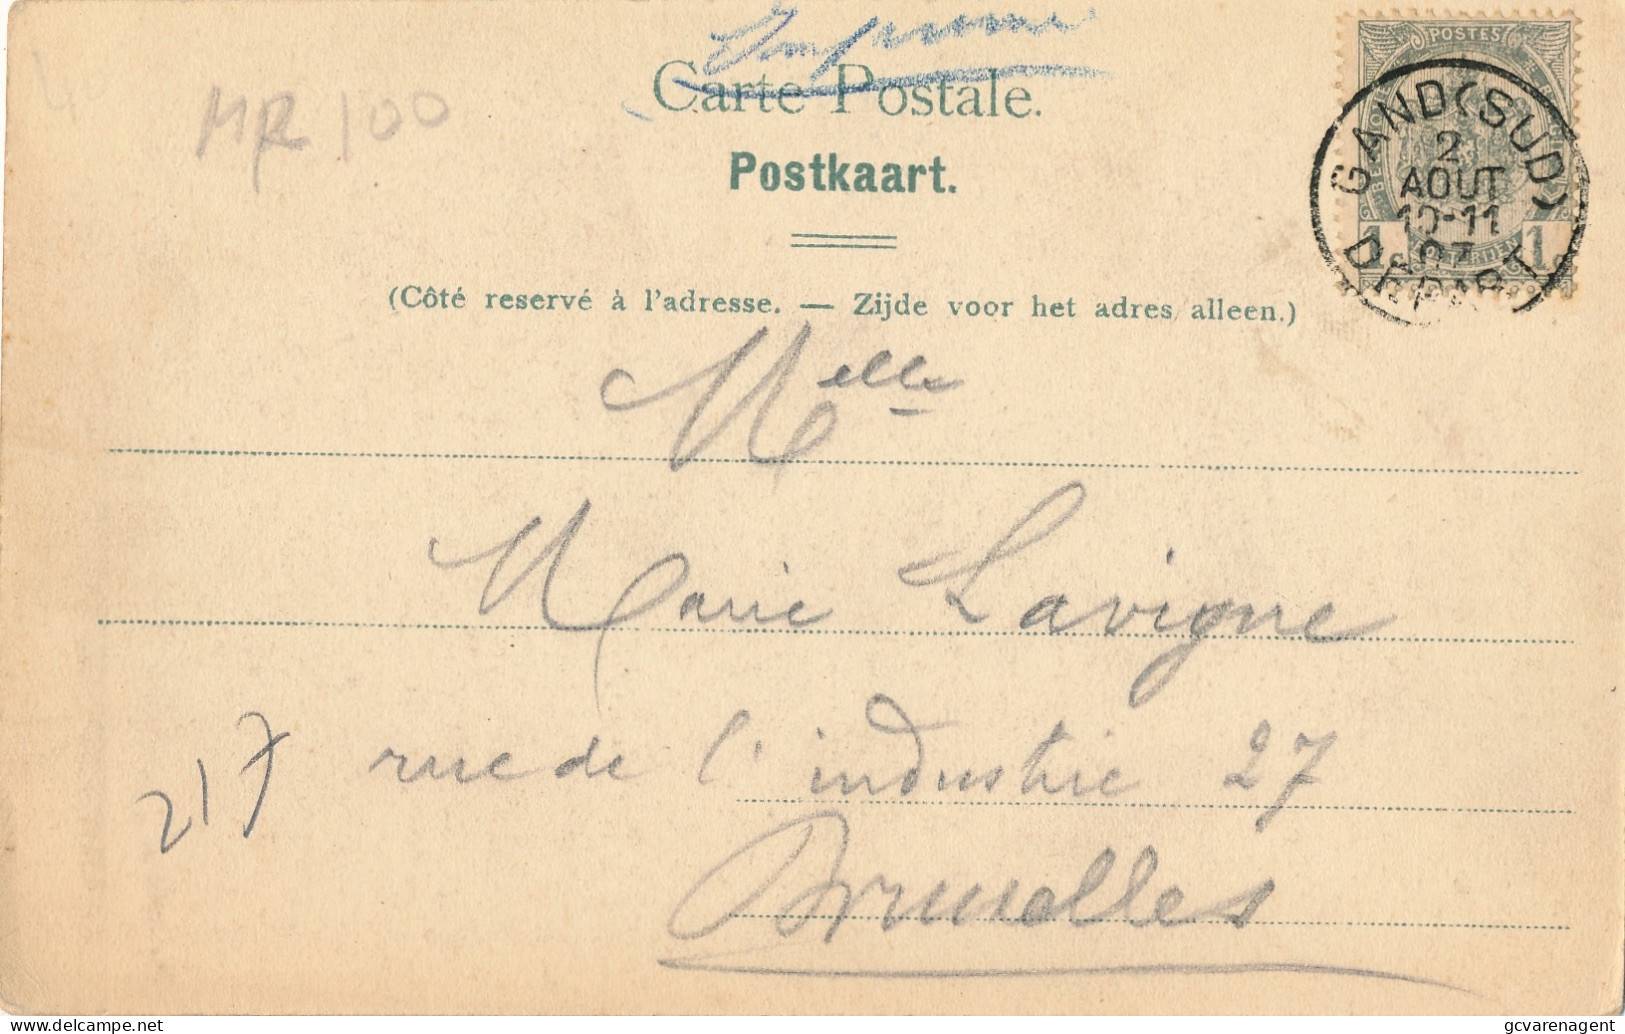 Imprimé
Carte Postale.
Postkaart.
MR 100
POSTES
GAND (SUD)
2
AOUT
10-11
07
DEPART
1 1
(Côté reservé à l'adresse. — Zijde voor het adres alleen.)
Melle
Marie Lavigne
rue de l'industrie 27
217
Bruxelles
© gcvarenagent